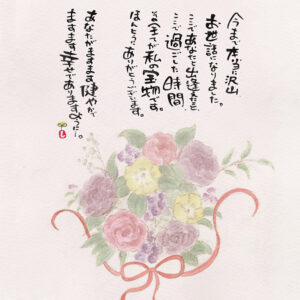 今まで本当に沢山、
お世話になりました。
ここであなたと出逢えたこと、
ここで過ごした時間、
その全てが私の宝物です。
ほんとうにありがとうございます。
あなたがますます健やかで
ますます幸せでありますように…。